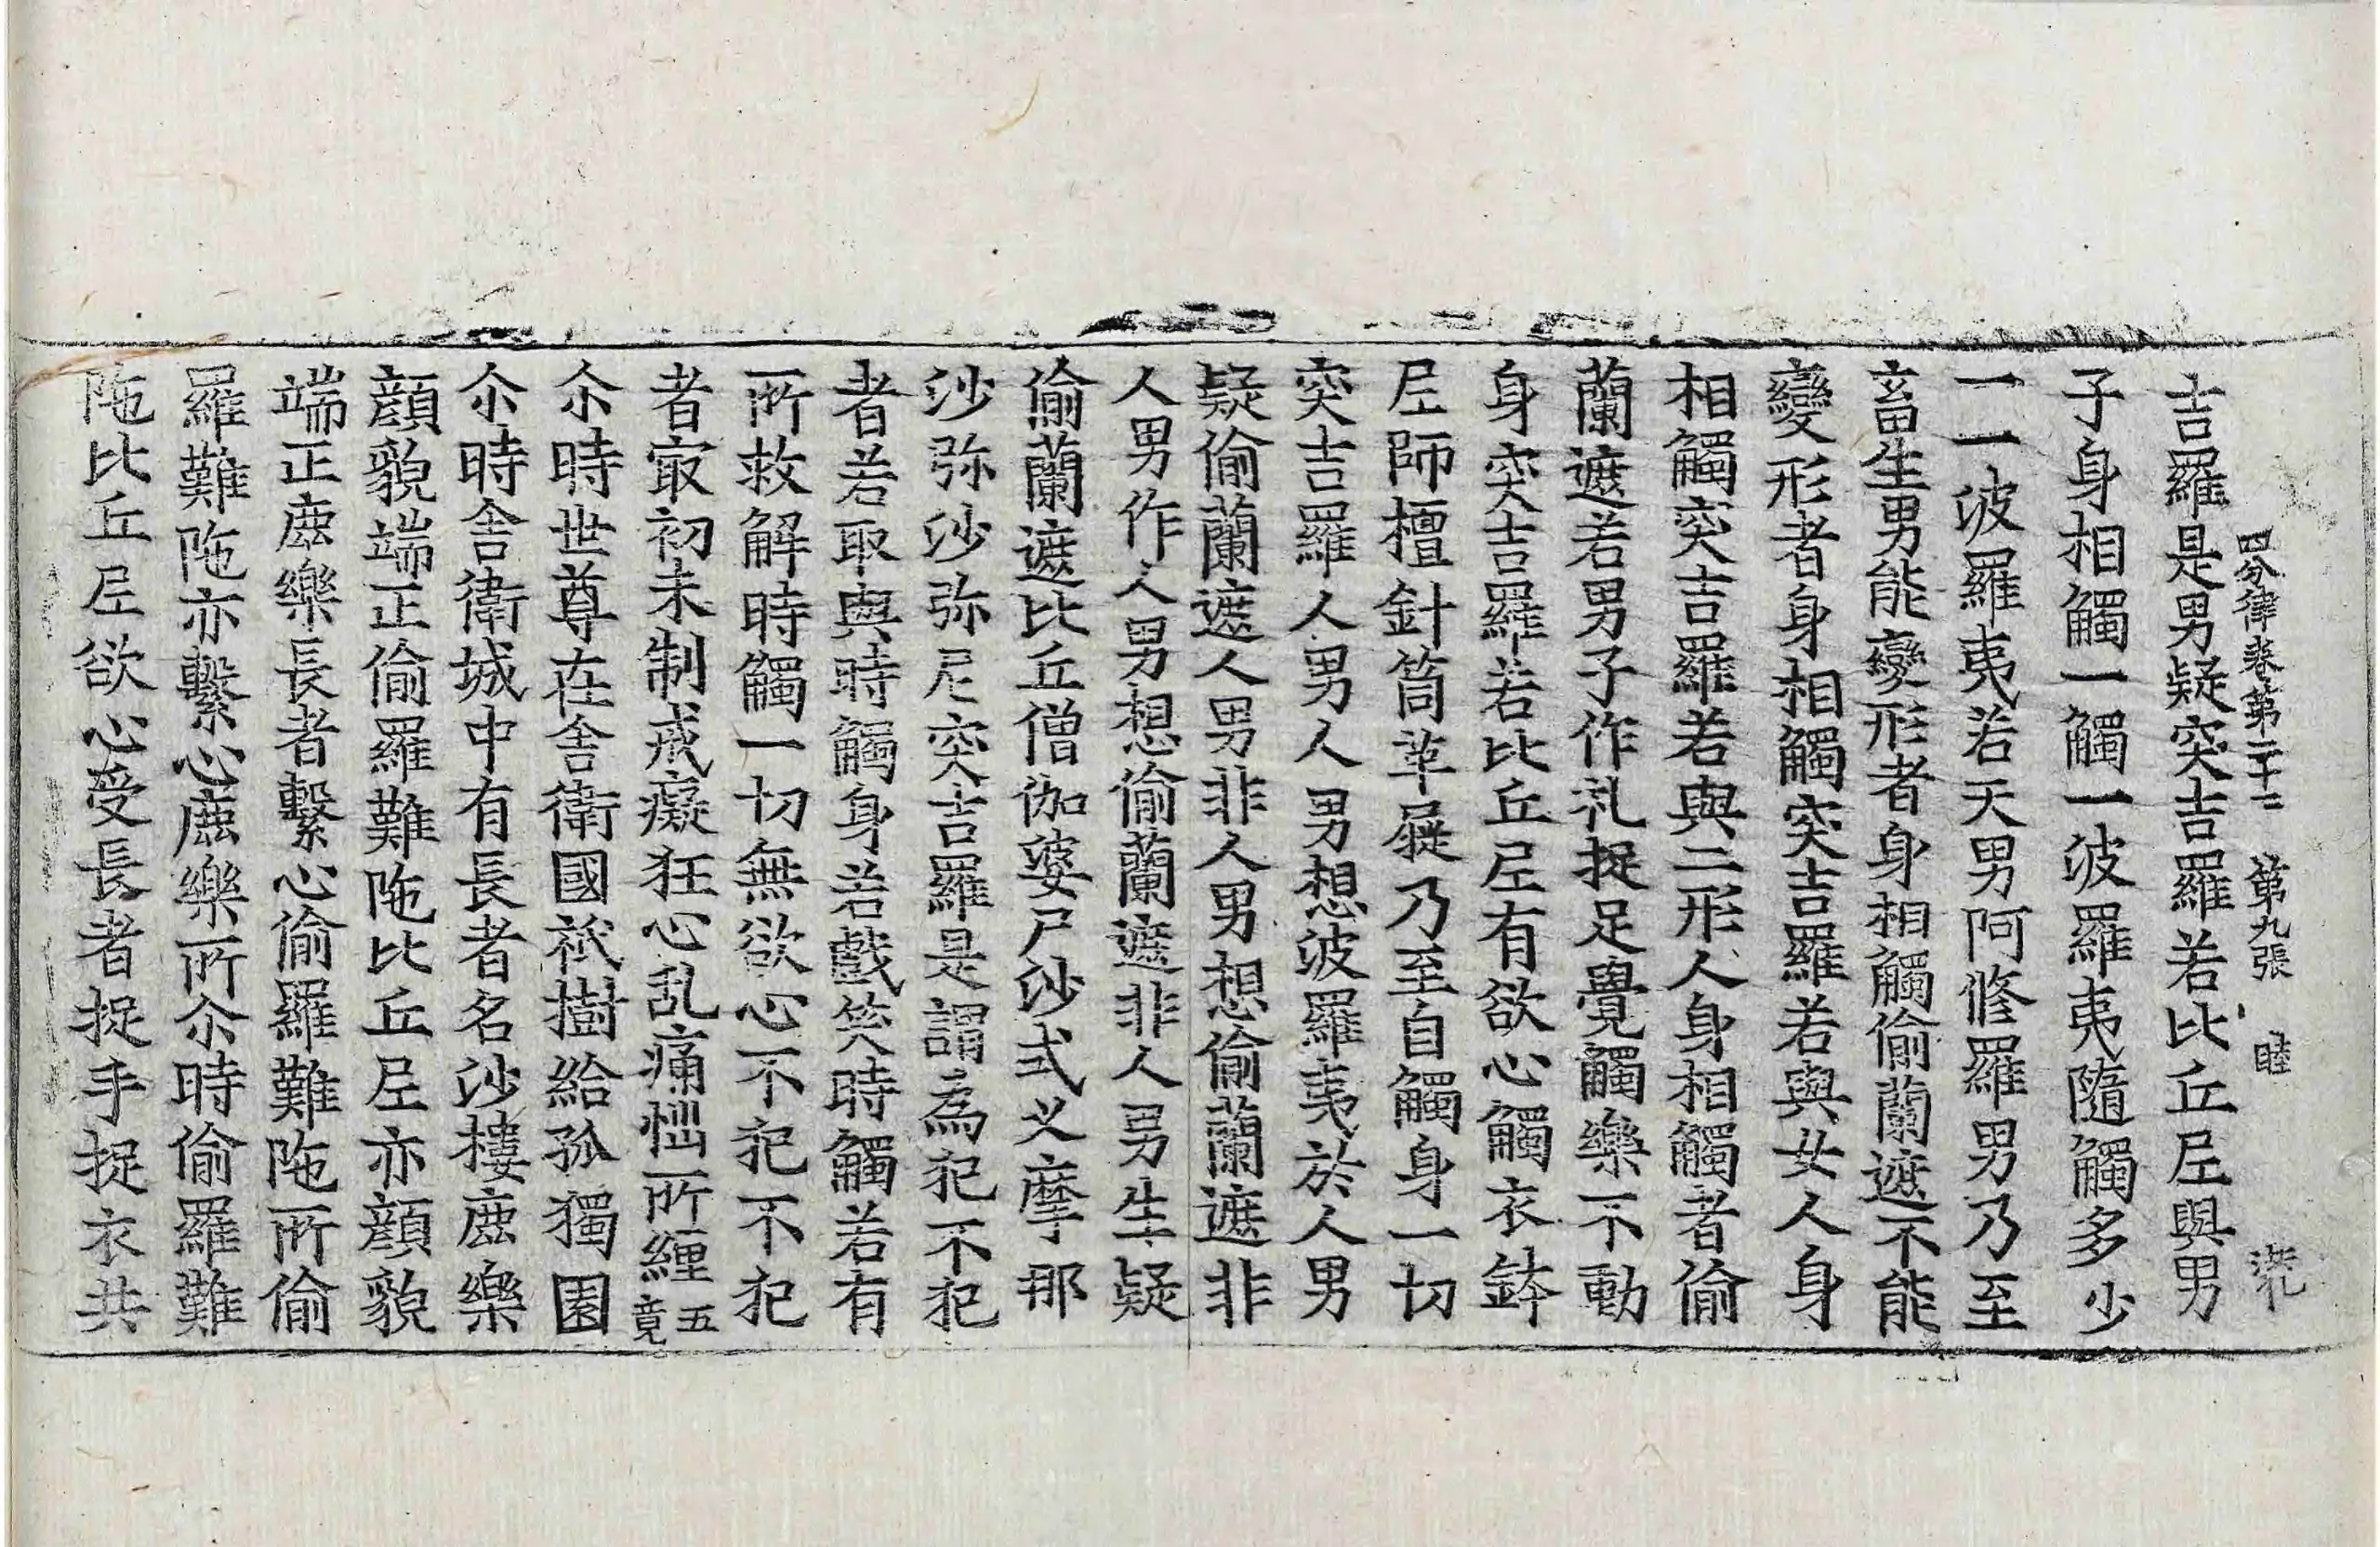 四分律卷第二十二　第九張　睦
吉羅是男疑突吉羅若比丘尼與男
子身相觸一觸一波羅夷隨觸多少
一一波羅夷若天男阿修羅男乃至
畜生男能變形者身相觸偷蘭遮不能
變形者身相觸突吉羅若與女人身
相觸突吉羅若與二形人身相觸者偷
蘭遮若男子作礼捉足覺觸樂不動
身突吉羅若比丘尼有欲心觸衣鉢
尼師檀針筒革屣乃至自觸身一切
突吉羅人男人男想波羅夷於人男
疑偷蘭遮人男非人男想偷蘭遮非
人男作人男想偷蘭遮非人男生疑
偷蘭遮比丘僧伽婆尸沙式叉摩那
沙弥沙弥尼突吉羅是謂為犯不犯
者若取與時觸身若戲笑時觸若有
所救解時觸一切無欲心不犯不犯
者㝡初未制戒癡狂心乱痛惱所纏五竟
尒時世尊在舍衛國祇樹給孤獨園
尒時舍衛城中有長者名沙樓鹿樂
顏貌端正偷羅難陁比丘尼亦顏貌
端正鹿樂長者繫心偷羅難陁所偷
羅難陁亦繫心鹿樂所尒時偷羅難
陁比丘尼欲心受長者捉手捉衣共